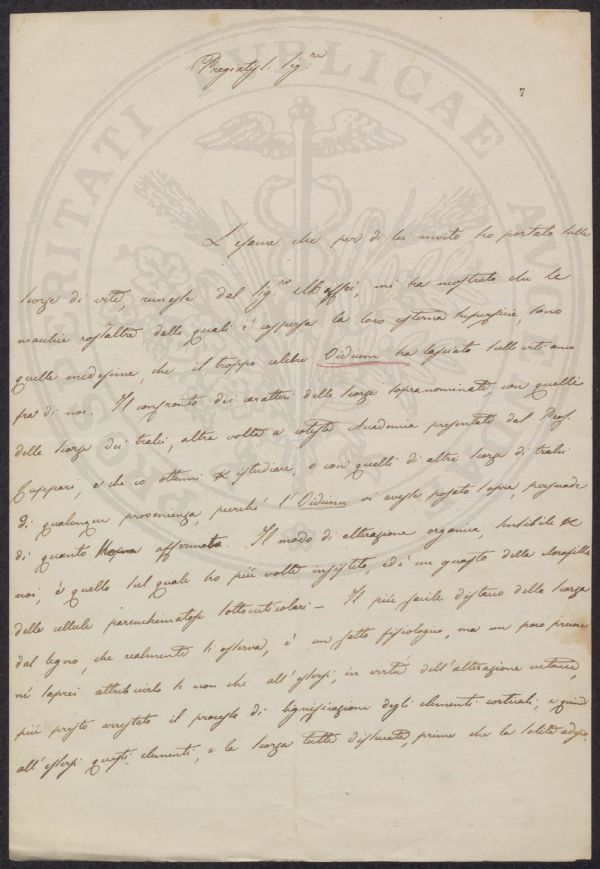 Pregiatiss. Sig.re
7
L'esame che per di lei invito ho portato sulle
scorze di vite, rimesse dal Sig.re mi ha mostrato che le
macchie rossastre dalle quali è cospersa la loro esterna superficie, sono
quelle medesime, che il troppo celebre Oidium ha lasciato sulle viti anco
fra di noi. Il confronto dei caratteri delle scorze sopranominate, con quelli
delle scorze dei tralci, altra volta a cotesta Accademia presentate dal Prof.
e che io ottenni studiare, o con quelli di altre scorze di tralci
di qualunque provenienza, purché l'Oidium vi avesse posato sopra, persuade
di quanto affermato. Il modo di alterazione organica, sensibile
noi, è quello sul quale ho più volte insistito, ed è un guasto della clorofilla
delle cellule parenchimatose sottocuticolari – Il più facile distacco della scorza
dal legno, che realmente si osserva, è un fatto fisiologico, ma un poco precoce
né saprei attribuirlo se non che all'essersi, in virtù dell'alterazione cutanea,
più presto arrestato il processo di lignificazione degli elementi corticali, e quindi
all'essersi questi elementi, e la scorza tutta disseccata, prima che la solita